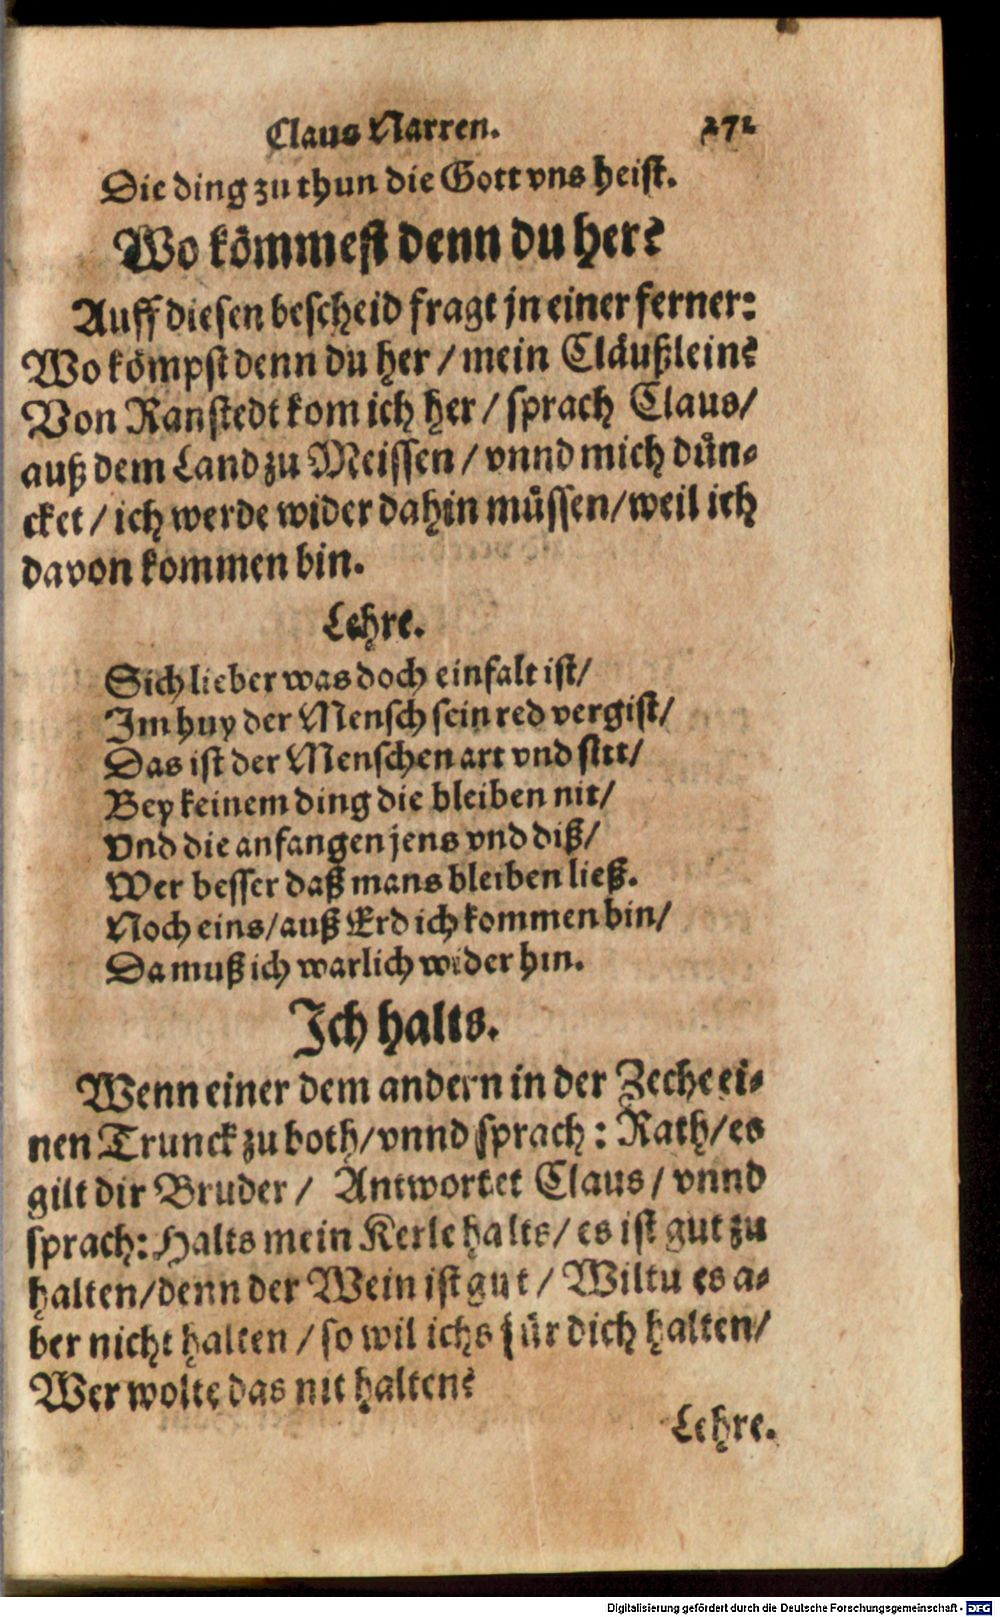 Claus Narren. 271
Die ding zu thun die Gott vns heist.
Wo kömmest denn du her?
Auff diesen bescheid fragt jn einer ferner:
Wo kömpst denn du her / mein Cläußlein?
Von Ranstedt kom ich her / sprach Claus/
auß dem Land zu Meissen / vnnd mich dün-
cket / ich werde wider dahin müssen/weil ich
davon kommen bin.
Lehre.
Sich lieber was doch einfalt ist/
Im huy der Mensch sein red vergist/
Das ist der Menschen art vnd sitt/
Bey keinem ding die bleiben nit/
Vnd die anfangen jens vnd diß/
Wer besser daß mans bleiben ließ.
Noch eins/auß Erd ich kommen bin/
Da muß ich warlich wider hin.
Ich halts.
Wenn einer dem andern in der Zeche ei-
nen Trunck zu both/vnnd sprach: Rath/es
gilt dir Bruder / Antwortet Claus / vnnd
sprach: Halts mein Kerle halts/ es ist gut zu
halten/denn der Wein ist gut / Wiltu es a-
ber nicht halten / so wil ichs für dich halten/
Wer wolte das nit halten?
Lehre.
Digitalisierung gefördert durch die Deutsche Forschungsgemeinschaft - DFG